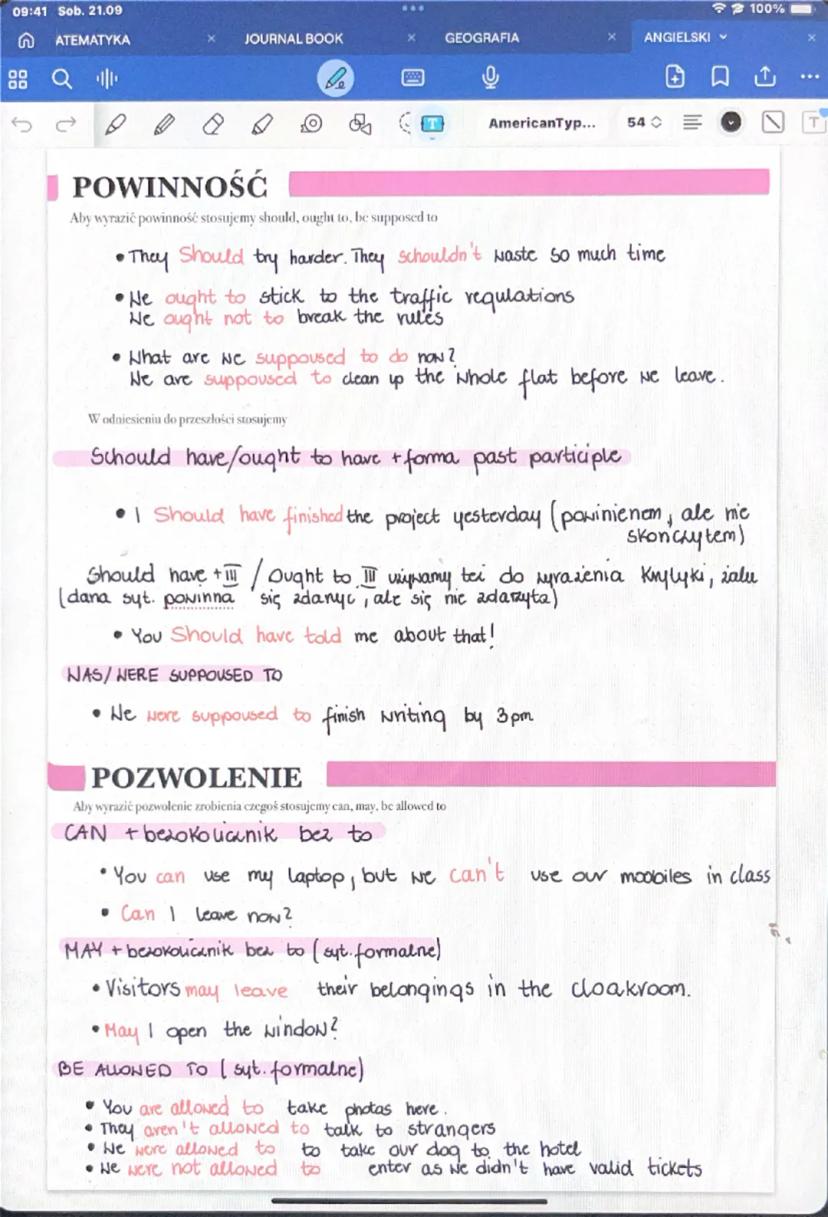 09:41 Sob. 21.09 100%
ATEMATYKA × JOURNAL BOOK × GEOGRAFIA × ANGIELSKI ×
AmericanTyp... 54
POWINNOŚĆ
Aby wyrazić powinność stosujemy should, ought to, be supposed to
• They Should try harder. They schouldn't waste so much time
• We ought to stick to the traffic regulations
We ought not to break the rules
• What are we suppoused to do now?
We are suppoused to clean up the whole flat before we leave.
W odniesieniu do przeszłości stosujemy
Schould have/ought to have + forma past participle
• I Should have finished the project yesterday (powinienem, ale nie
skonczytem)
Should have + III / Ought to III używamy też do wyrażenia Krytyki, żalu
(dana syt. powinna się zdarzyć, ale się nie zdarzyta)
• You Should have told me about that!
WAS/WERE SUPPOUSED TO
• We were suppoused to finish writing by 3pm
POZWOLENIE
Aby wyrazić pozwolenie zrobienia czegoś stosujemy can, may, be allowed to
CAN + bezokolicznik bez to
• You can use my laptop, but we can't use our moobiles in class
• Can I leave now?
MAY + bezokolicznik bez to (syt. formalne)
• Visitors may leave their belongings in the cloakroom.
• May I open the window?
BE ALLOWED TO (syt. formalne)
• You are allowed to take photas here.
• They aren't allowed to talk to strangers
• We were allowed to to take our dog to the hotel
• We were not allowed to enter as we didn't have valid tickets